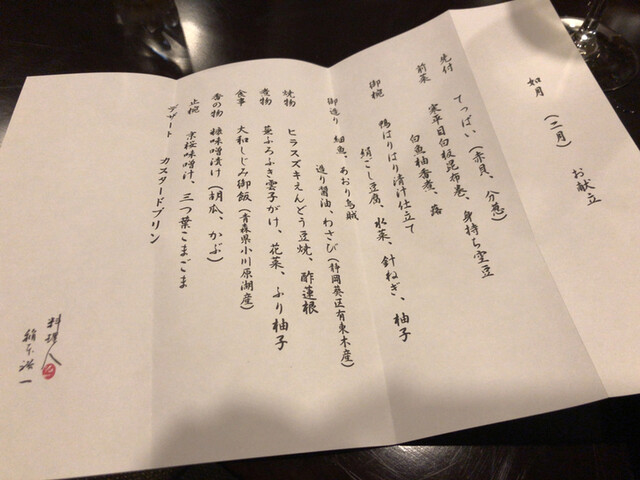 如月 (二月) お献立
先付 てっぱい(赤貝、分葱)
前菜 寒平目白板昆布巻、身持ち空豆
白魚柚香煮、蕗
御椀 鴨はりはり清汁仕立て
絹ごし豆腐、水菜、針ねぎ、柚子
御造り 細魚、あおり烏賊
造り醤油、わさび(静岡葵区有東木産)
焼物 ヒラスズキえんどう豆焼、酢蓮根
煮物 蕪ふろふき雲子がけ、花菜、ふり柚子
食事 大和しじみ御飯(青森県小川原湖産)
香の物 糠味噌漬け(胡瓜、かぶ)
止椀 京桜味噌汁、三つ葉こまごま
デザート カスタードプリン
料理人
一